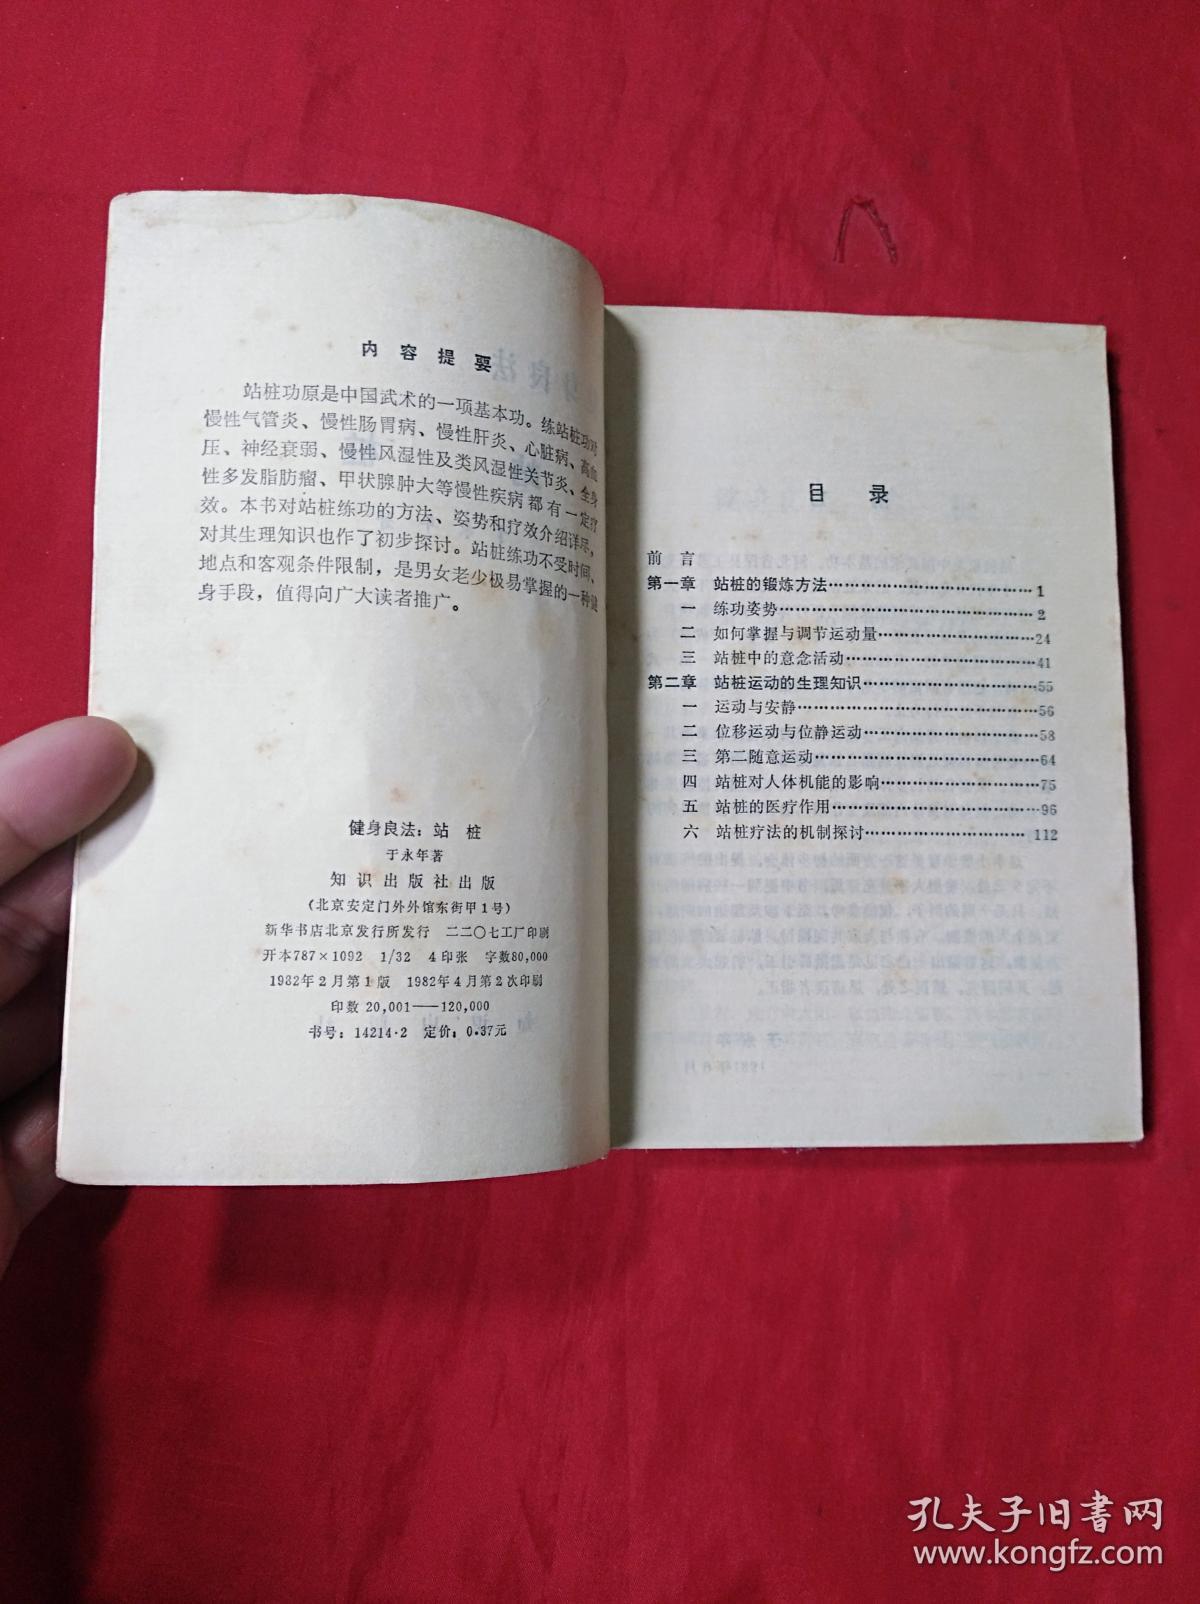 内容提要
站桩功原是中国武术的一项基本功。练站桩功对
慢性气管炎、慢性肠胃病、慢性肝炎、心脏病、高血
压、神经衰弱、慢性风湿性及类风湿性关节炎、全身
性多发脂肪瘤、甲状腺肿大等慢性疾病都有一定疗
效。本书对站桩练功的方法、姿势和疗效介绍详尽，
对其生理知识也作了初步探讨。站桩练功不受时间、
地点和客观条件限制，是男女老少极易掌握的一种健
身手段，值得向广大读者推广。
健身良法：站 桩
于永年著
知识出版社出版
（北京安定门外外馆东街甲1号）
新华书店北京发行所发行 二二〇七工厂印刷
开本787×1092 1/32 4印张 字数80,000
1982年2月第1版 1982年4月第2次印刷
印数 20,001——120,000
书号：14214·2 定价：0.37元
目 录
前 言
第一章 站桩的锻炼方法……………………………1
一 练功姿势……………………………2
二 如何掌握与调节运动量……………………………24
三 站桩中的意念活动……………………………41
第二章 站桩运动的生理知识……………………………55
一 运动与安静……………………………56
二 位移运动与位静运动……………………………58
三 第二随意运动……………………………64
四 站桩对人体机能的影响……………………………75
五 站桩的医疗作用……………………………96
六 站桩疗法的机制探讨……………………………112
孔夫子旧书网
www.kongfz.com